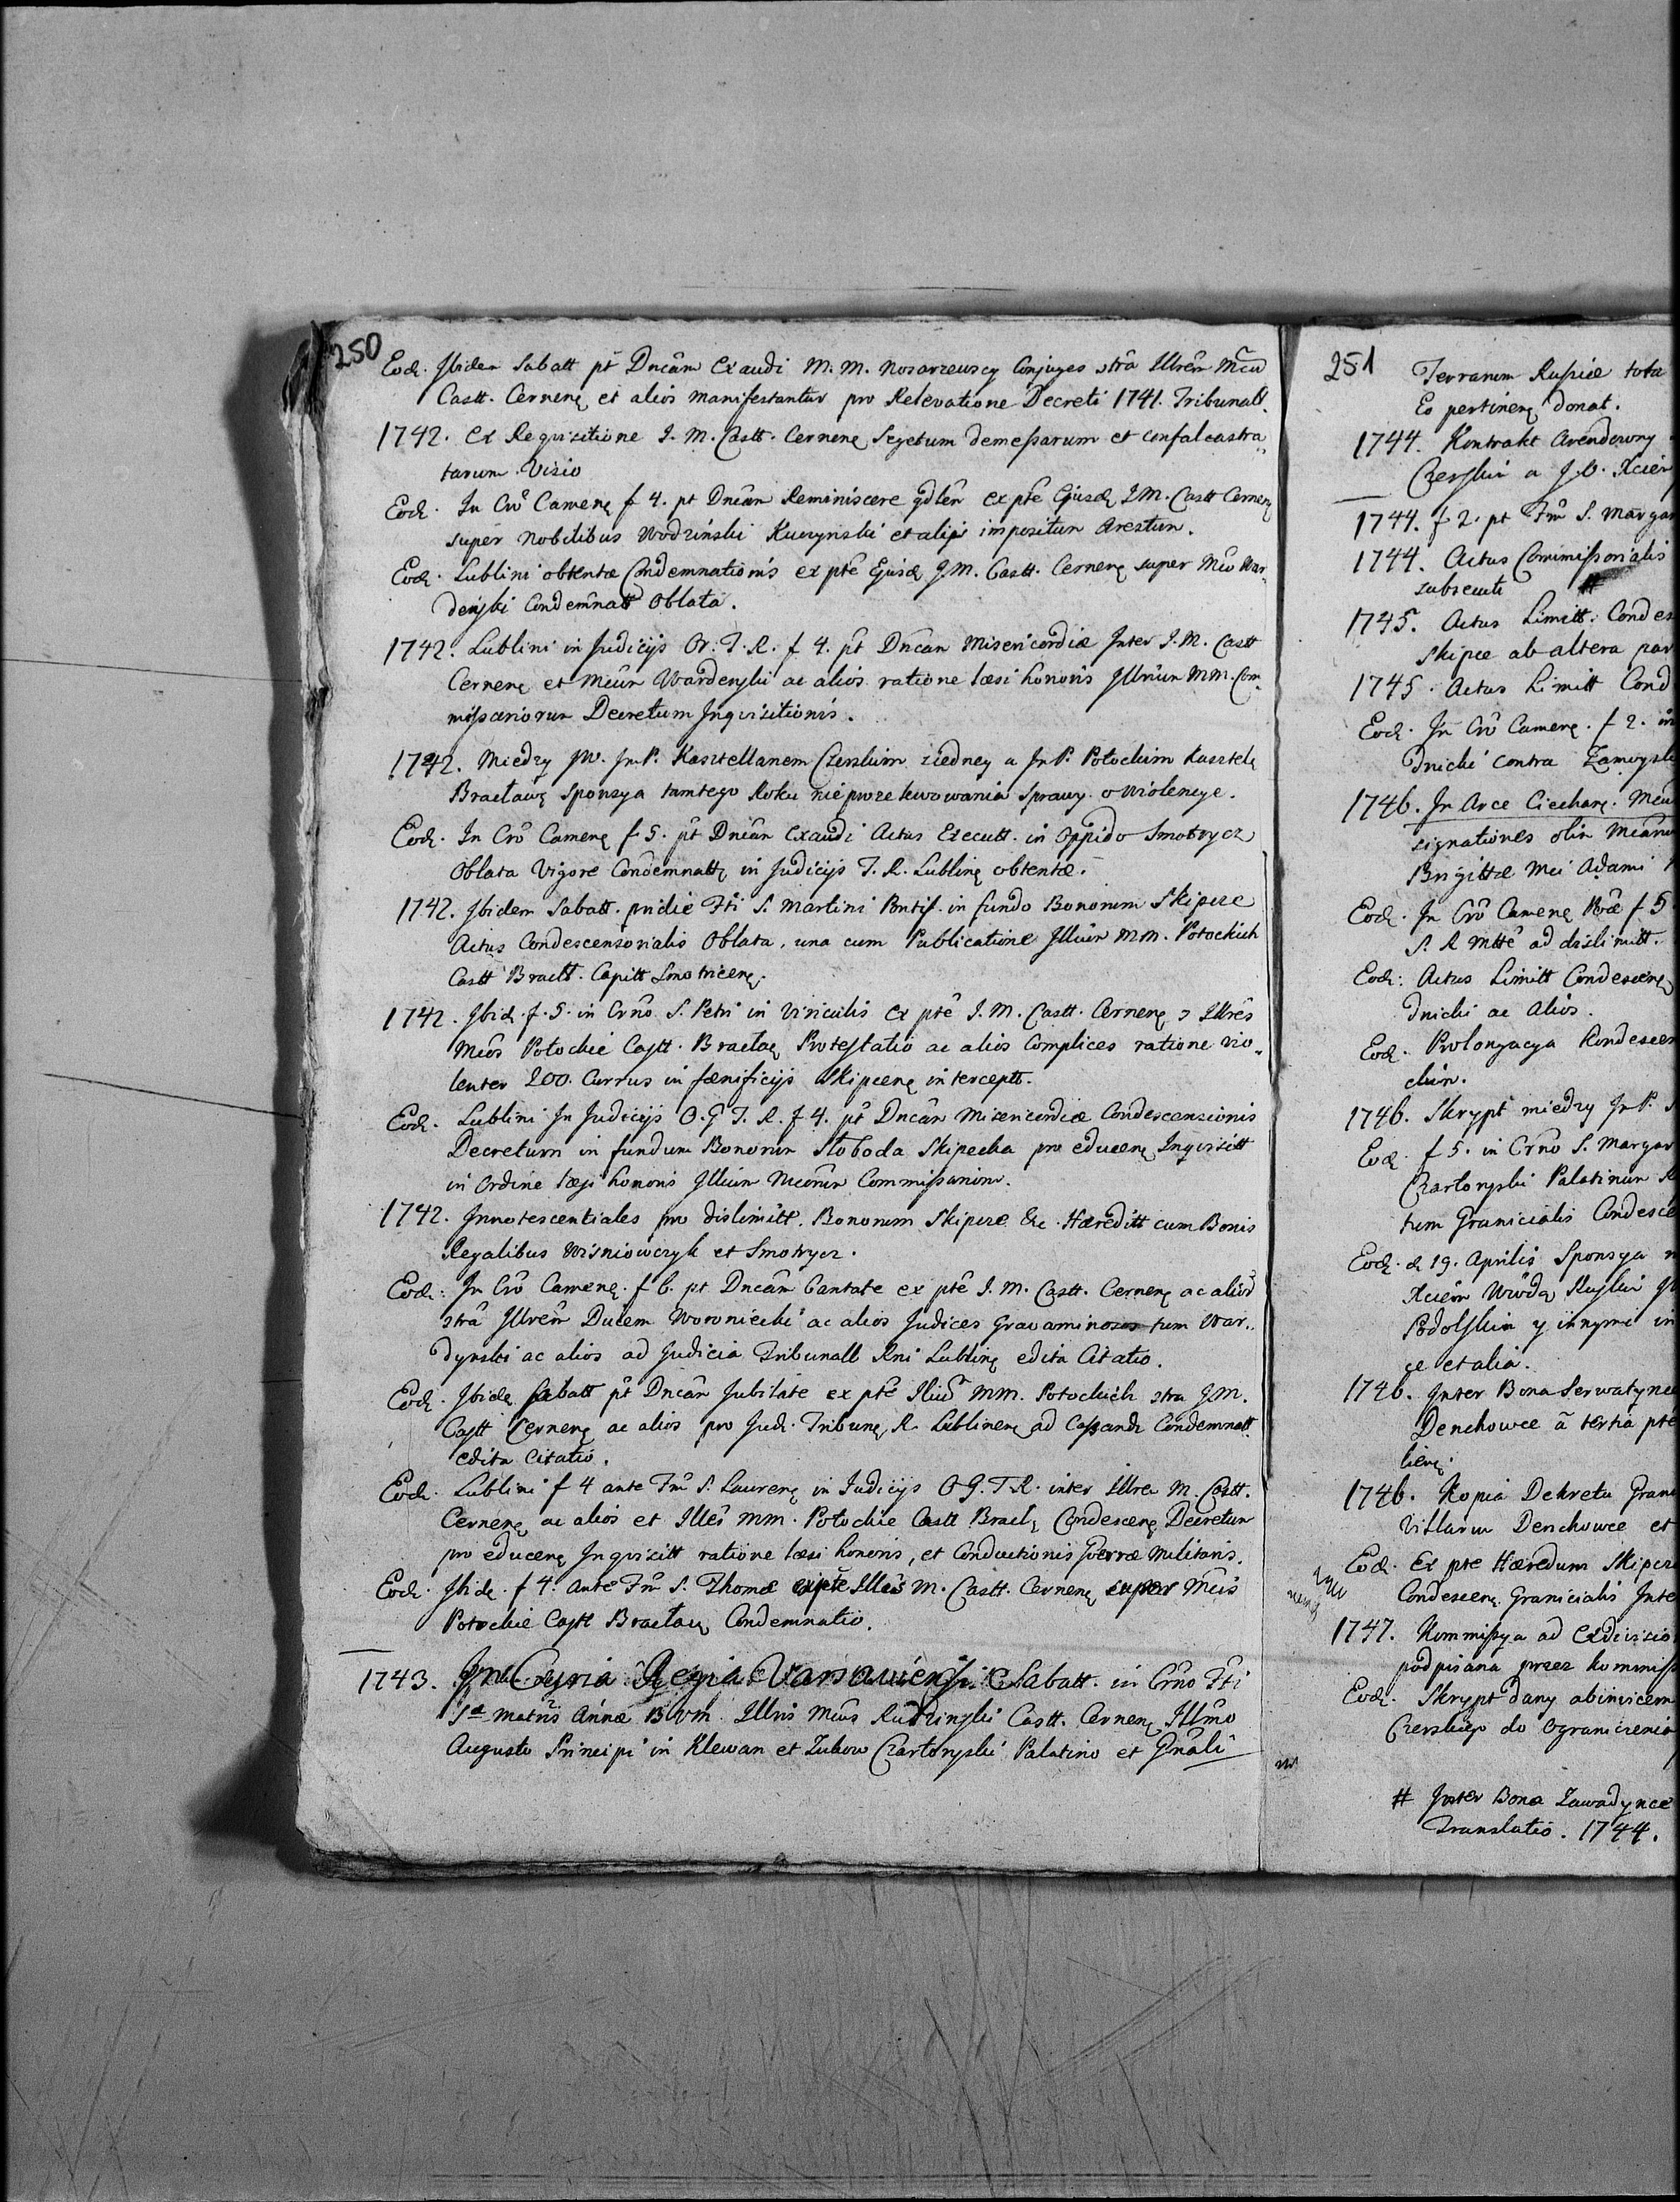 250
Eod. Ibidem Sabatt pt Dncam Exaudi M. M. Nosarzewscy Conjuges ɔtra Illrem Mcum
Castt. Cernenę et alios manifestantur pro Relevatione Decreti 1741. Tribunall.
1742. Ex Requisitione I. M. Castt. Cernenę Segetum demessarum et confalcastra„
tarum Visio
Eod. In Crô Camenę f 4. pt Dncam Reminiscere gdlem ex pte Ejusd. I M. Castt Cernenę
super Nobilibus Wodzinski Kuczynski et alijs impositum Arestum.
Eod. Lublini obtentæ Condemnationis ex pte Ejusd J. M. Castt. Cernenę super Mco War„
denski Condemnatt Oblata.
1742. Lublini in Judicijs Or. T. R. f 4. pt Dncam Misericordiæ Inter I. M. Castt
Cernenę et Mcum Wardenski ac alios ratione læsi honoris Illrium MM. Com„
missariorum Decretum Inquisitionis.
1742. Miedzy JW. Jm P. Kasztellanem Czerskim z iedney a Jm P. Potockim Kasztelę
Bracławę Sponsya tamtego Roku nie prozekwowania Sprawy o Wiolencye.
Eod. In Crô Camenę f 5. pt Dncam Exaudi Actus Executt. in Oppido Smotrycz
Oblata Vigore Condemnattę in Judicijs T. R. Lublinę obtentæ.
1742. Ibidem Sabatt. pridie Fti S. Martini Pontif. in fundo Bonorum Skipcze
Actus Condescensorialis Oblata, una cum Publicatione Illium MM. Potockich
Castt Braclt. Capitt Smotricenę.
1742. Ibid. f. 5. in Crno S. Petri in Vinculis ex pte I. M. Castt. Cernenę ɔ Illres
Mcos Potockie Castt. Bracłaę Protestatio ac alios Complices ratione vio„
lenter 200. Currus in fænificijs Skipcenę intercept.
Eod. Lublini In Judicijs O. G T. R. f 4. pt Dncam Misericordiæ Condescensionis
Decretum in fundum Bonorum Słoboda Skipecka pro educenę Inqvisitt
in Ordine læsi honoris Illium Mcorum Commissariorum.
1742. Innotescentiales pro dislimitt. Bonorum Skipcze &c. Hæreditt cum Bonis
Regalibus Wisniowczyk et Smotrycz.
Eod. In Crô Camenę. f 6. pt Dncam Cantate ex pte I. M. Castt. Cernenę ac alios
ɔtra Illrem Ducem Woroniecki ac alios Judices Gravaminosos tum War„
dynski ac alios ad Judicia Tribunall Rni Lublinę edita Citatio.
Eod. Ibide Sabatt pt Dncam Jubilate ex pte Illium MM. Potockich ɔtra J M.
Castt Cernenę ac alios pro Judi. Tribunę R. Lublinenę ad Cassandi Condemnatt.
edita Citatio.
Eod. Lublini f 4 ante Fm S. Laurenę in Judicijs O G. T R. inter Illrem M. Castt.
Cernenę ac alios et Illes MM. Potockie Castt Braclę Condescenę Decretum
pro educenę Inqvisitt ratione læsi honoris, et Conductionis Guerræ Militaris.
Eod. Ibide. f 4. ante Fm S. Thomæ ex pte Illris M. Castt. Cernenę super Mcis
Potockie Castt Bracłaę Condemnatio.
1743. In Curia Regia Varsaviensi Sabatt. in Crno Fti
S. Matris Annæ B V M. Illris Mcus Rudzinski Castt. Cernenę Illmo
Augusto Principi in Klewan et Zukow Czartoryski Palatino et Gnali
251
Terrarum Russiæ tota
Eo pertinenę donat.
1744. Kontrakt Arendowny
Czerskim a J. O. Xciem
1744. f 2. pt Fm S. Margar
1744. Actus Commissorialis
subsecuti #
1745. Actus Limitt. Condes
Skipce ab altera par
1745. Actus Limitt Cond
Eod. In Crô Camenę. f 2. in
dnicki contra Zamoysk
1746. In Arce Ciechanę. Mcu
signationes olim Mcarum
Brigittæ Mci Adami
Eod. In Crô Camenę f 5.
S. R Mtte ad dislimitt.
Eod. Actus Limitt Condescenę
dnicki ac alios.
Eod. Prolongacya Kondescen
ckim.
1746. Skrypt miedzy Jm P.
Eod. f 5. in Crno S. Margar
Czartoryski Palatinum R
tum Granicialis Condesce
Eod. d 19. Aprilis Sponsya
Xciem Wwodą Ruskim
Podolskim y innymi in
ge et alia.
1746. Inter Bona Serwatynce
Denchowce a tertia pte
lienę.
1746. Kopia Dekretu Grani
Villarum Denchowce et
Eod. Ex pte Hæredum Skipcze
Condescenę Granicialis Inte
1747. Kommissya ad Exdivisio
podpisana przez Kommiss
Eod. Skrypt dany abinvicem
Czerskiego do Ograniczenia
# Inter Bona Zawadynce
Translatio. 1744.